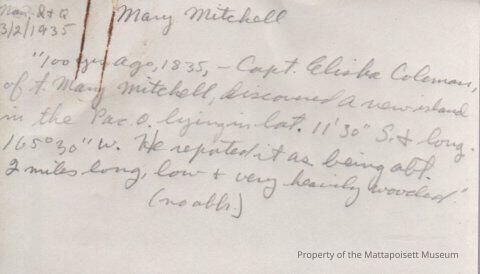 Nan. I & Q
3/2/1935
Mary Mitchell
"100 yrs ago, 1835, - Capt. Elisha Coleman,
of t. Mary Mitchell, discovered a new island
in the Pac. O. lying in lat. 11'30" S. & long.
165°30" W. He reported it as being abt.
2 miles long, low & very heavily wooded."
(no abbr.)
Property of the Mattapoisett Museum